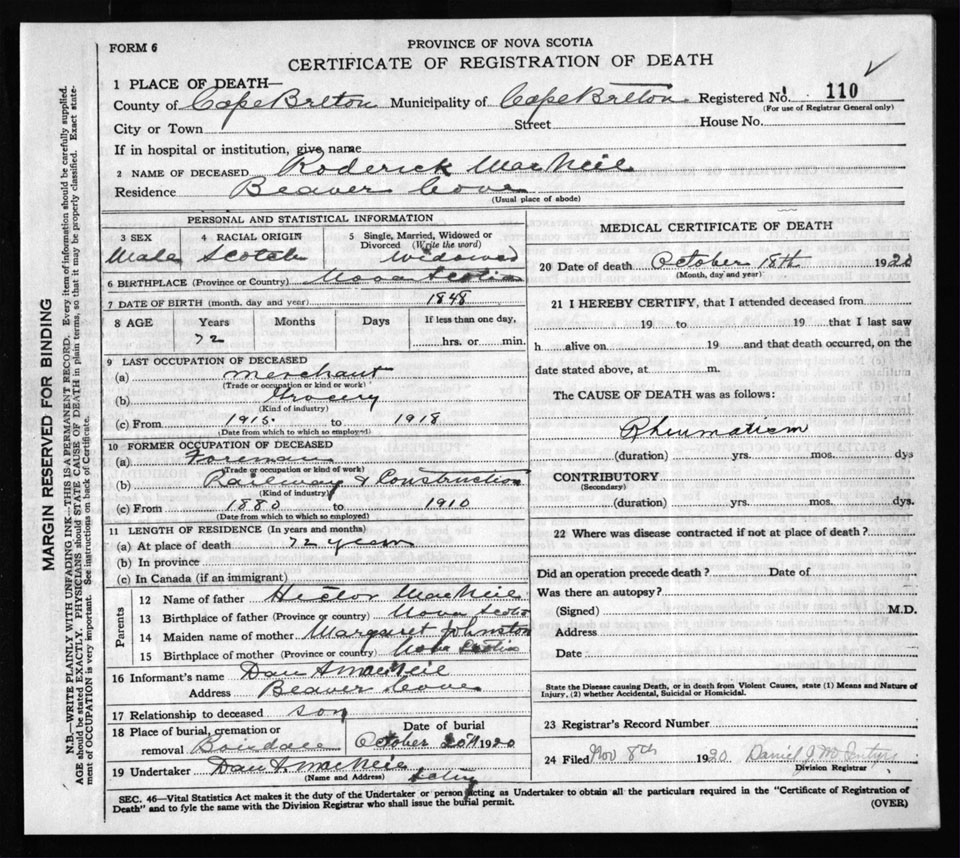 FORM 6
PROVINCE OF NOVA SCOTIA
CERTIFICATE OF REGISTRATION OF DEATH
1 PLACE OF DEATH—
County of Cape Breton Municipality of Cape Breton Registered No. 110
(For use of Registrar General only)
City or Town Street House No.
If in hospital or institution, give name
2 NAME OF DECEASED Roderick MacNeil
Residence Beaver Cove
(Usual place of abode)
PERSONAL AND STATISTICAL INFORMATION
3 SEX 4 RACIAL ORIGIN 5 Single, Married, Widowed or Divorced (Write the word)
Male Scotch Widowed
6 BIRTHPLACE (Province or Country) Nova Scotia
7 DATE OF BIRTH (month, day and year) 1848
8 AGE Years Months Days If less than one day,
72 hrs. or min.
9 LAST OCCUPATION OF DECEASED
(a) merchant
(Trade or occupation or kind or work)
(b) Grocery
(Kind of industry)
(c) From 1915 to 1918
(Date from which to which so employed)
10 FORMER OCCUPATION OF DECEASED
(a) Foreman
(Trade or occupation or kind of work)
(b) Railway & Construction
(Kind of industry)
(c) From 1880 to 1910
(Date from which to which so employed)
11 LENGTH OF RESIDENCE (In years and months)
(a) At place of death 72 years
(b) In province
(c) In Canada (if an immigrant)
Parents
12 Name of father Hector MacNeil
13 Birthplace of father (Province or country) Nova Scotia
14 Maiden name of mother Margaret Johnston
15 Birthplace of mother (Province or country) Nova Scotia
16 Informant's name Dan A MacNeil
Address Beaver Cove
17 Relationship to deceased son
18 Place of burial, cremation or removal Boisdale Date of burial October 20th 1920
19 Undertaker Dan A. MacNeil acting
(Name and Address)
MEDICAL CERTIFICATE OF DEATH
20 Date of death October 18th 1920
(Month, day and year)
21 I HEREBY CERTIFY, that I attended deceased from
19 to 19 that I last saw
h alive on 19 and that death occurred, on the
date stated above, at m.
The CAUSE OF DEATH was as follows:
Rheumatism
(duration) yrs. mos. dys
CONTRIBUTORY
(Secondary)
(duration) yrs. mos. dys.
22 Where was disease contracted if not at place of death?
Did an operation precede death? Date of
Was there an autopsy?
(Signed) M.D.
Address
Date
State the Disease causing Death, or in death from Violent Causes, state (1) Means and Nature of
Injury, (2) whether Accidental, Suicidal or Homicidal.
23 Registrar's Record Number
24 Filed Nov 8th 1920 Daniel J McIntyre
Division Registrar
SEC. 46—Vital Statistics Act makes it the duty of the Undertaker or person acting as Undertaker to obtain all the particulars required in the "Certificate of Registration of
Death" and to fyle the same with the Division Registrar who shall issue the burial permit. (OVER)
MARGIN RESERVED FOR BINDING
N.B.—WRITE PLAINLY WITH UNFADING INK—THIS IS A PERMANENT RECORD. Every item of information should be carefully supplied.
AGE should be stated EXACTLY. PHYSICIANS should STATE CAUSE OF DEATH in plain terms, so that it may be properly classified. Exact state-
ment of OCCUPATION is very important. See instructions on back of Certificate.